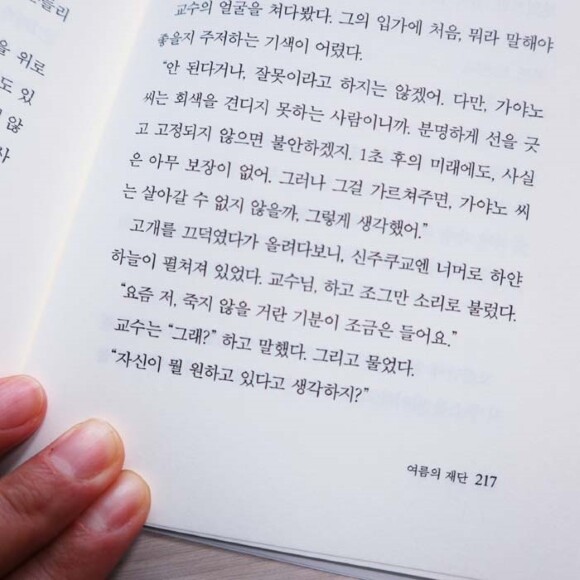 을 위로
도 있
않
사
교수의 얼굴을 쳐다봤다. 그의 입가에 처음, 뭐라 말해야
좋을지 주저하는 기색이 어렸다.
“안 된다거나, 잘못이라고 하지는 않겠어. 다만, 가야노
씨는 회색을 견디지 못하는 사람이니까. 분명하게 선을 긋
고 고정되지 않으면 불안하겠지. 1초 후의 미래에도, 사실
은 아무 보장이 없어. 그러나 그걸 가르쳐주면, 가야노 씨
는 살아갈 수 없지 않을까, 그렇게 생각했어.”
고개를 끄덕였다가 올려다보니, 신주쿠교엔 너머로 하얀
하늘이 펼쳐져 있었다. 교수님, 하고 조그만 소리로 불렀다.
“요즘 저, 죽지 않을 거란 기분이 조금은 들어요.”
교수는 “그래?” 하고 말했다. 그리고 물었다.
“자신이 뭘 원하고 있다고 생각하지?”
여름의 재단 217